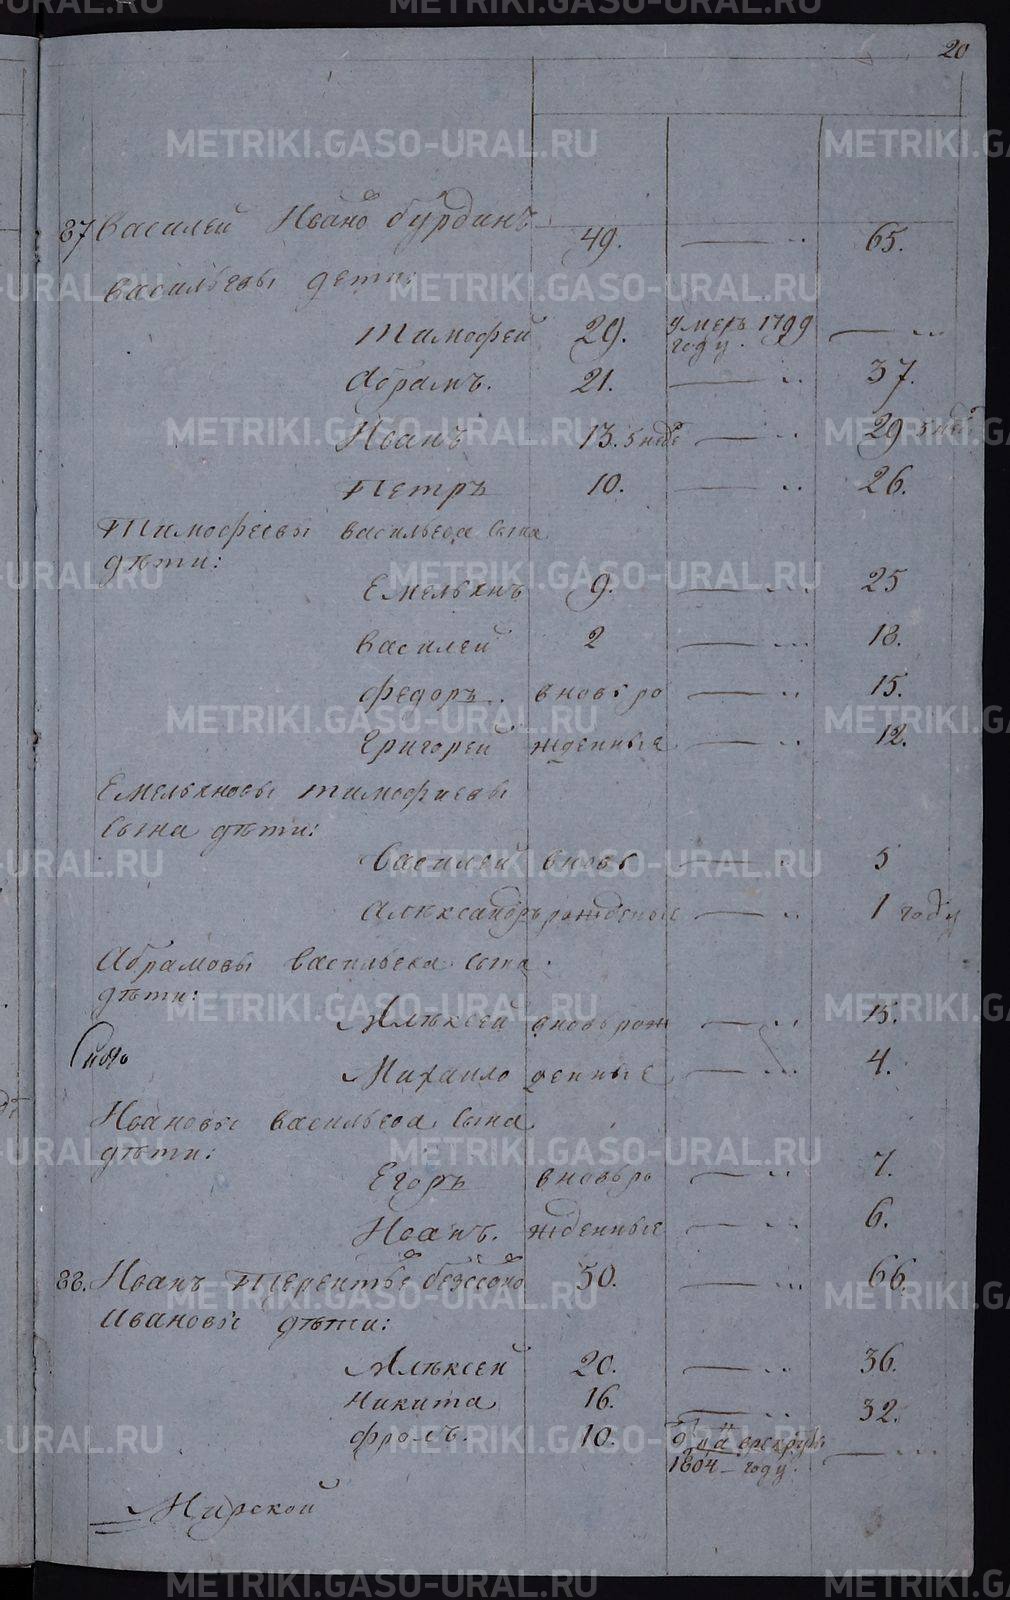 20
87 Василей Ивано Бурдинъ 49. — .. 65.
Васильевы дети:
Тимофей 29. умеръ 1799 году. — ...
Абрамъ. 21. — .. 37.
Иванъ 13. 5 неде — .. 29 5 нед
Петръ 10. — .. 26.
Тимофеевы Васильева сына
дѣти:
Емельянъ 9. — ... 25
Василей 2 — ... 18.
Федоръ. вновьро — .. 15.
Григорей жденные — .. 12.
Емельяновы Тимофиевы
сына дѣти:
Василей вновь — .. 5
Алѣксандръ рожденые — .. 1 году
Абрамовы Васильева сына.
дѣти:
Алѣксей вновьрож — .. 15.
Михаило денные — ... 4.
Ивановы Васильева сына
дѣти:
Егоръ вновьро — .. 7.
Иванъ. жденные — ... 6.
88. Иванъ Терентье Безсоно 50. — ... 66.
Ивановы дѣти:
Алѣксей 20. — ... 36.
Никита 16. — ... 32.
Фролъ. 10. 1804 — году. — ...
Мирской
METRIKI.GASO-URAL.RU